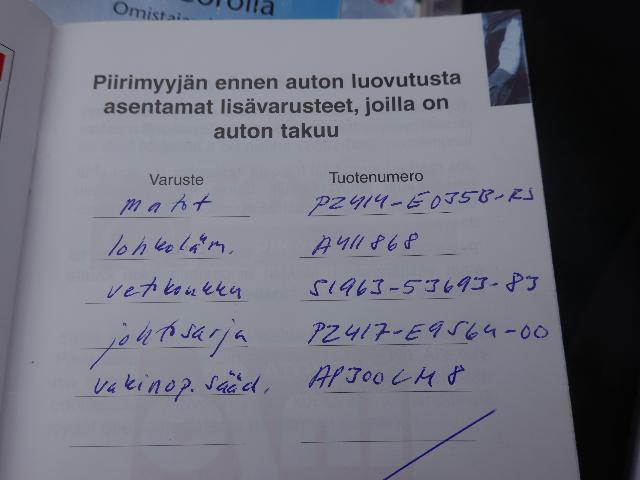 Corolla
Omistaja
Piirimyyjän ennen auton luovutusta
asentamat lisävarusteet, joilla on
auton takuu
Varuste Tuotenumero
matot PZ414-E035B-RJ
lohkoläm. A411868
vetikoukku S1963-53693-83
johtosarja PZ417-E9564-00
vakinop. sääd. AP300CM8